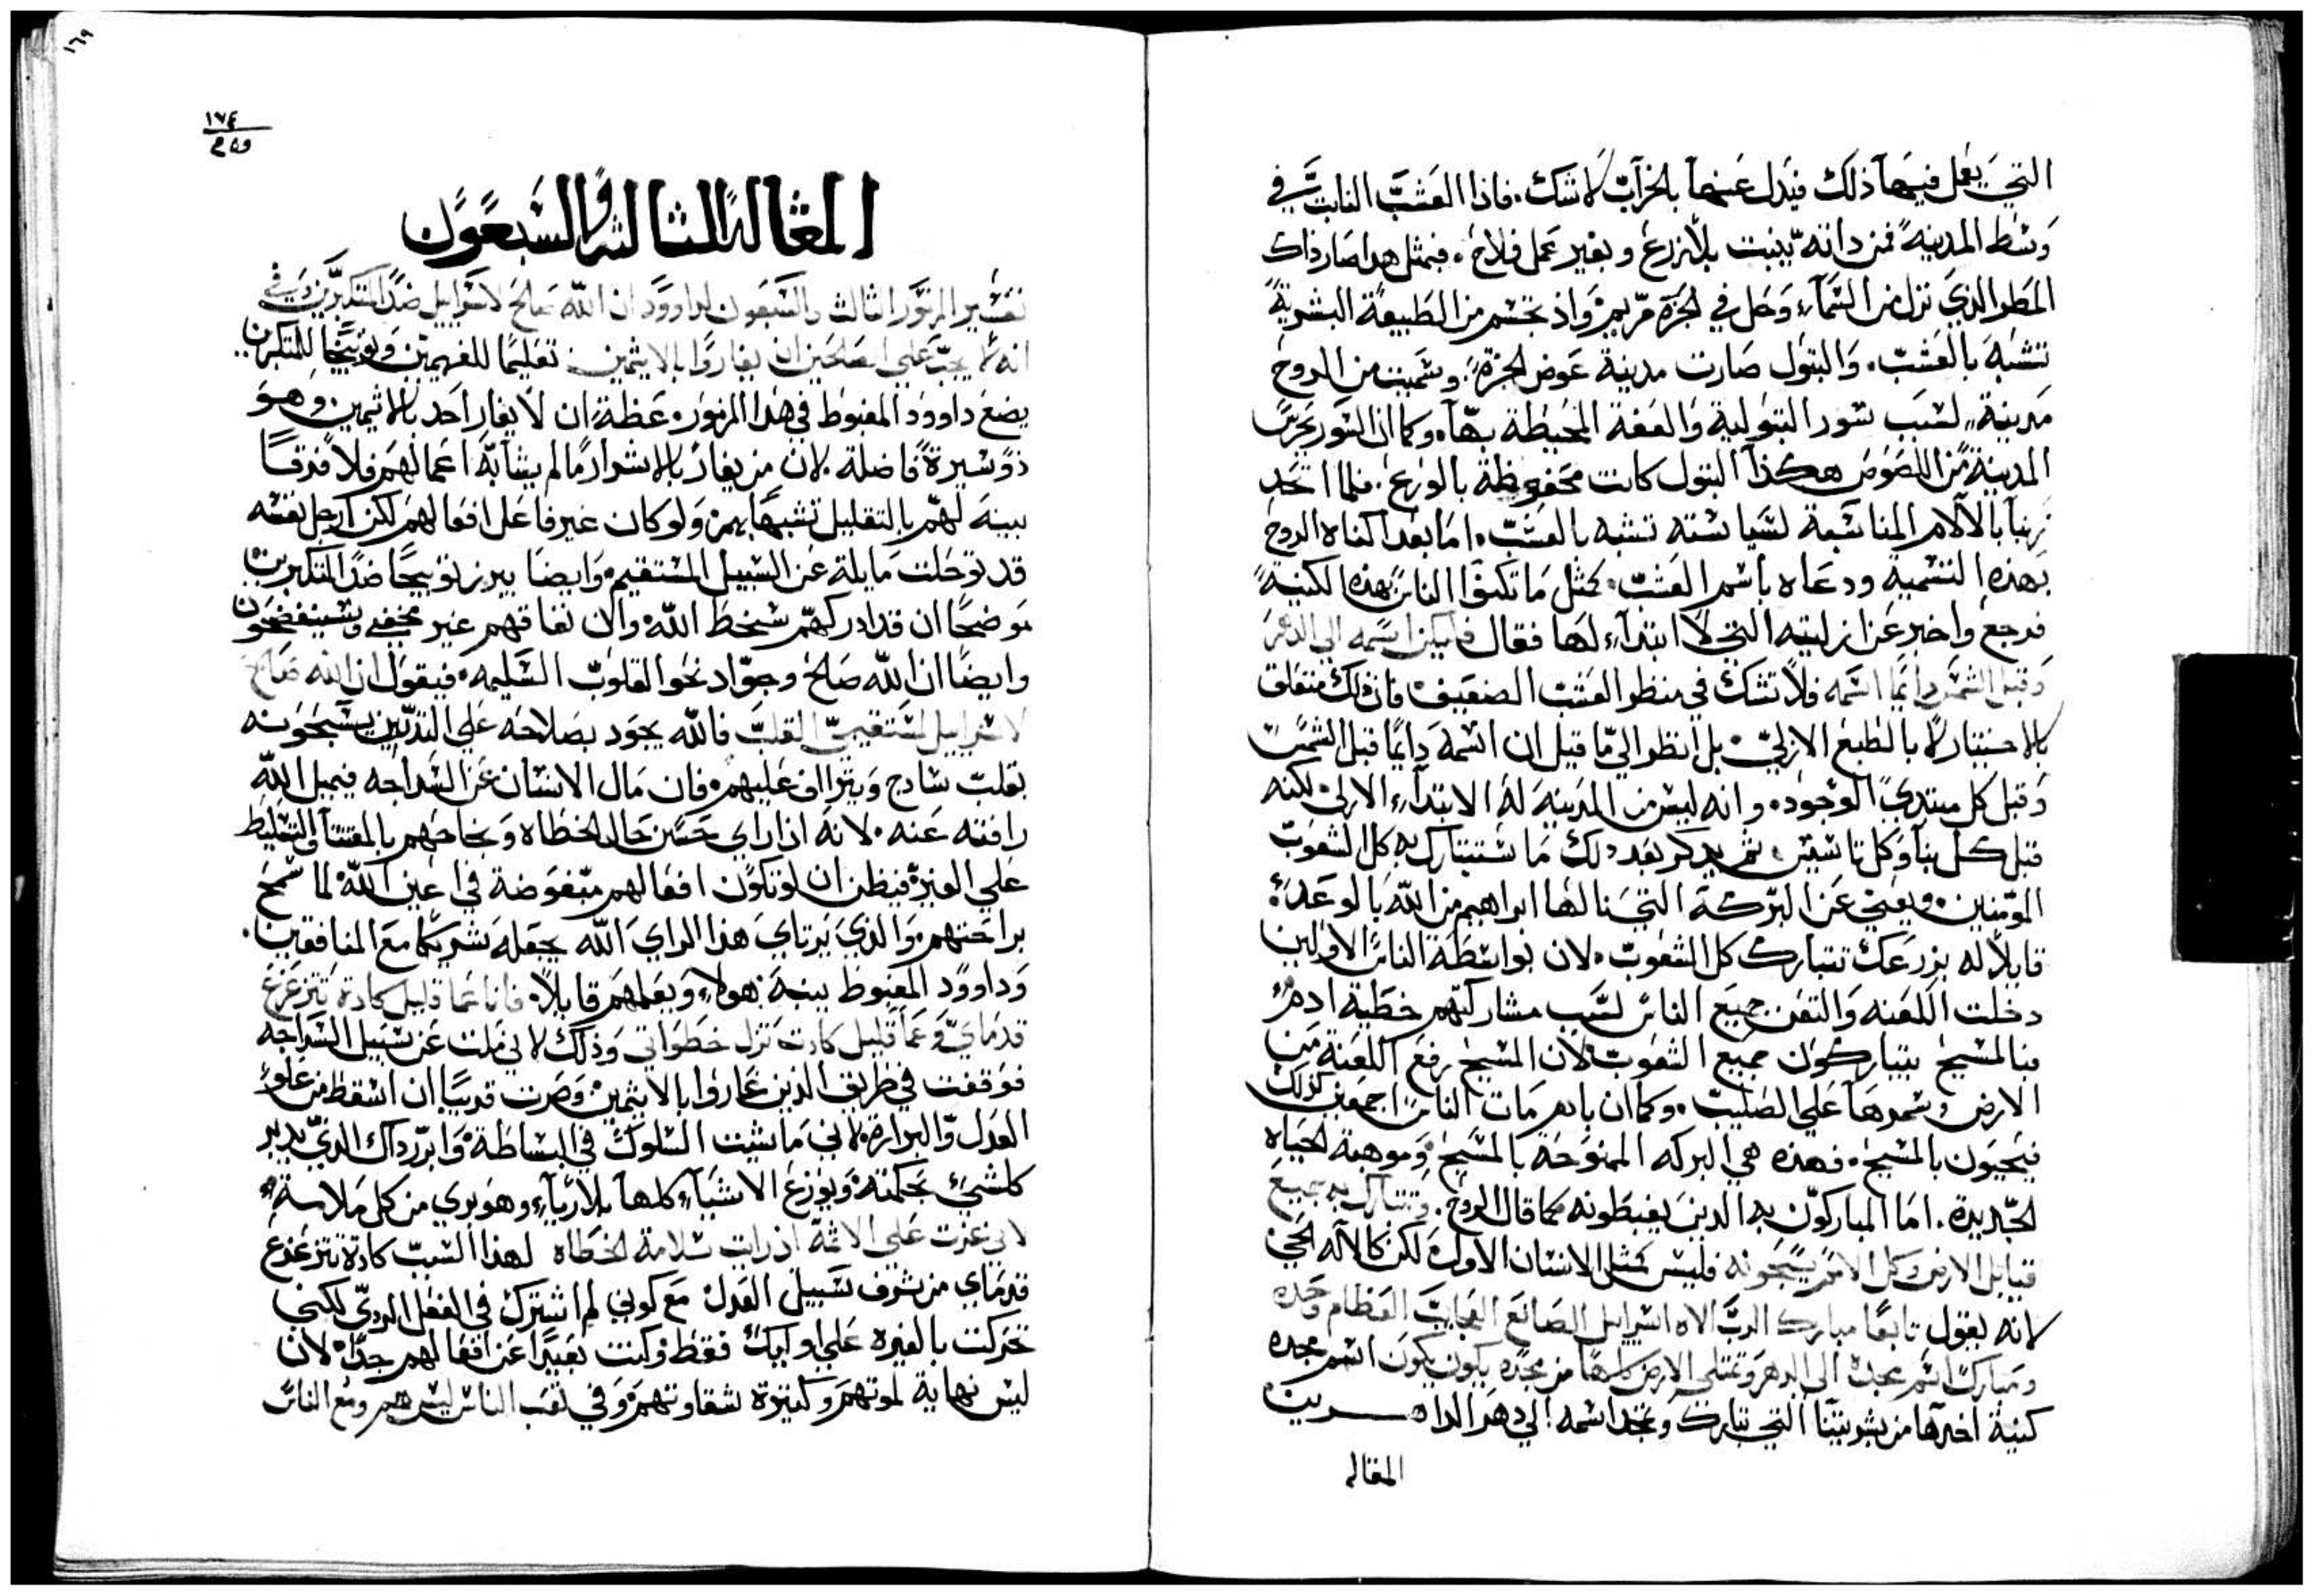 التي يعمل فيها ذلك فيدل عنها بالخرآب لا شك. فاذا العشب النابت في
وسط المدينة فمن داته ينبت بلا زرع وبغير عمل فلاح. فبمثل هدا صار ذاك
المطر الذي نزل من السمآء وحل في لجزة مريم واذ تجسم من الطبيعة البشرية
تشبه بالعشب. والبتول صارت مدينة عوض لجزة. وسميت من الروح
مدينة لسبب سور البتولية والعفة المحيطة بهآ. وكما ان السور يحرس
المدينة من اللصوص هكذآ البتول كانت محفوظة بالورع. فلما اتحد
ربنا بالآلام المناسبة لسياسته تشبه بالعشب. اما بعد اكناه الروح
بهذه التسمية ودعاه باسم العشب. كمثل ما تكنوآ الناس بهذه الكنية
فرجع واخبر عن ازليته التي لا ابتدآء لها فقال فليكن اسمه الى الدهر
وقبل الشمس دايمًا اسمه فلا تشك في منظر العشب الضعيف فان ذلك متعلق
بالاختيار لا بالطبع الازلي. بل انظر الي ما قيل ان اسمه دايمًا قبل الشمس
وقبل كل مبتدي الوجود. وانه ليس من المدينة له الابتدآء الازلي لكنه
قبل كل بنآ وكل تاسيس. ثم يدكر بعد دلك ما ستتبارك به كل الشعوب
المومنين. ويعني عن البركة التي نالها ابراهيم من الله بالوعد
قايلاً له بزرعك تتبارك كل الشعوب. لان بواسطة الناس الاولين
دخلت اللعنه والتعن جميع الناس لسبب مشاركتهم خطية ادم
فبالمسيح يتباركون جميع الشعوب. لان المسيح رفع اللعنة من
الارض وسمرها علي الصليب. وكما ان بادم مات الناس اجمعين كذلك
فيحيون بالمسيح. فهذه هي البركه الممنوحة بالمسيح وموهبة لحياه
الجديدة. اما المباركون به الدين يغبطونه كما قال الروح. وتتبارك به جميع
قبايل الارض وكل الامم يسبحونه فليس كمثل الانسان الاول لكن كالآله الحي
لانه يقول تابعًا مبارك الرب الاه اسراييل الصانع العجايب العظام وحده
ومبارك اسم مجده الى الدهر وتمتلي الارض كلها من مجده يكون يكون اسم مجده
كنية اخدها من بشريتنا التي تبارك وتمجد اسمه الي دهر الداهرين
المقاله
١٦٩
١٧٤
٢٥٩
المقالة الثالثة والسبعون
تفسير المزمور الثالث والسبعون لداوود ان الله صالح لاسراييل ضد المتكبرين وفي
انه لا يجب علي الصالحين ان يغاروا بالاثمين. تعليمًا للفهمين وتوبيخًا للمتكبرين
يضع داوود المغبوط في هذا المزمور. عظة ان لا يغار احد بالاثمين. وهو
ذو سيرة فاضلة. لان من يغار بالاشرار ما لم يشابه اعمالهم فلا فرقًا
بينه لهم بالتقليل تشبهًا بهم. ولو كان غير فاعل افعالهم لكن ارجل نفسه
قد توحلت مايلة عن السبيل المستقيم. وايضًا يبرز توبيخًا ضد المتكبرين
موضحًا ان قد ادركهم سخط الله والان نفاقهم غير مخفي وسيفضحون
وايضًا ان الله صالح وجواد نحو القلوب السليمه. فيقول ان الله صالح
لاسراييل لمستقيمي القلب فالله يجود بصلاحه علي الذين يسبحونه
بقلب سادج ويتراف عليهم. فان مال الانسان عن السداجه فيميل الله
رافته عنه. لانه اذا راي حسن حال الخطاه ونجاحهم بالمقتنآ والتسليط
علي الغيرة فيظن ان لو تكون افعالهم مبغوضة في اعين الله لما سمح
براحتهم. والذي يرتاي هذا الراي الله يجعله شريكًا مع المنافقين.
وداوود المغبوط ينبه هولآء ويعلمهم قايلاً. فانا عما قليل كادة تتزعزع
قدماي وعما قليل كادت تزل خطواتي وذلك لاني ملت عن سبيل السداجه
فوقفت في طريق الذين غاروا بالاثمين. وصرت قريبًا ان اسقط من علو
العدل والبرارة. لاني ما شيت السلوك في البساطة. وابرر داك الدي يدبر
كلشي بحكمته. ويوزع الاشيآء كلها بلا ريآء. وهو بري من كل ملامة
لاني غرت علي الاثمة اذ رايت سلامة الخطاه لهذا السبب كادة تتزعزع
قدماي من شرف سبيل العدل مع كوني لم اشترك في الفعل الردي لكني
تحركت بالغيره علي اوليك فقط. وكنت بعيدًا عن افعالهم جدًا. لان
ليس نهاية لموتهم وكثيرة شقاوتهم وفي تعب الناس ليس هم ومع الناس